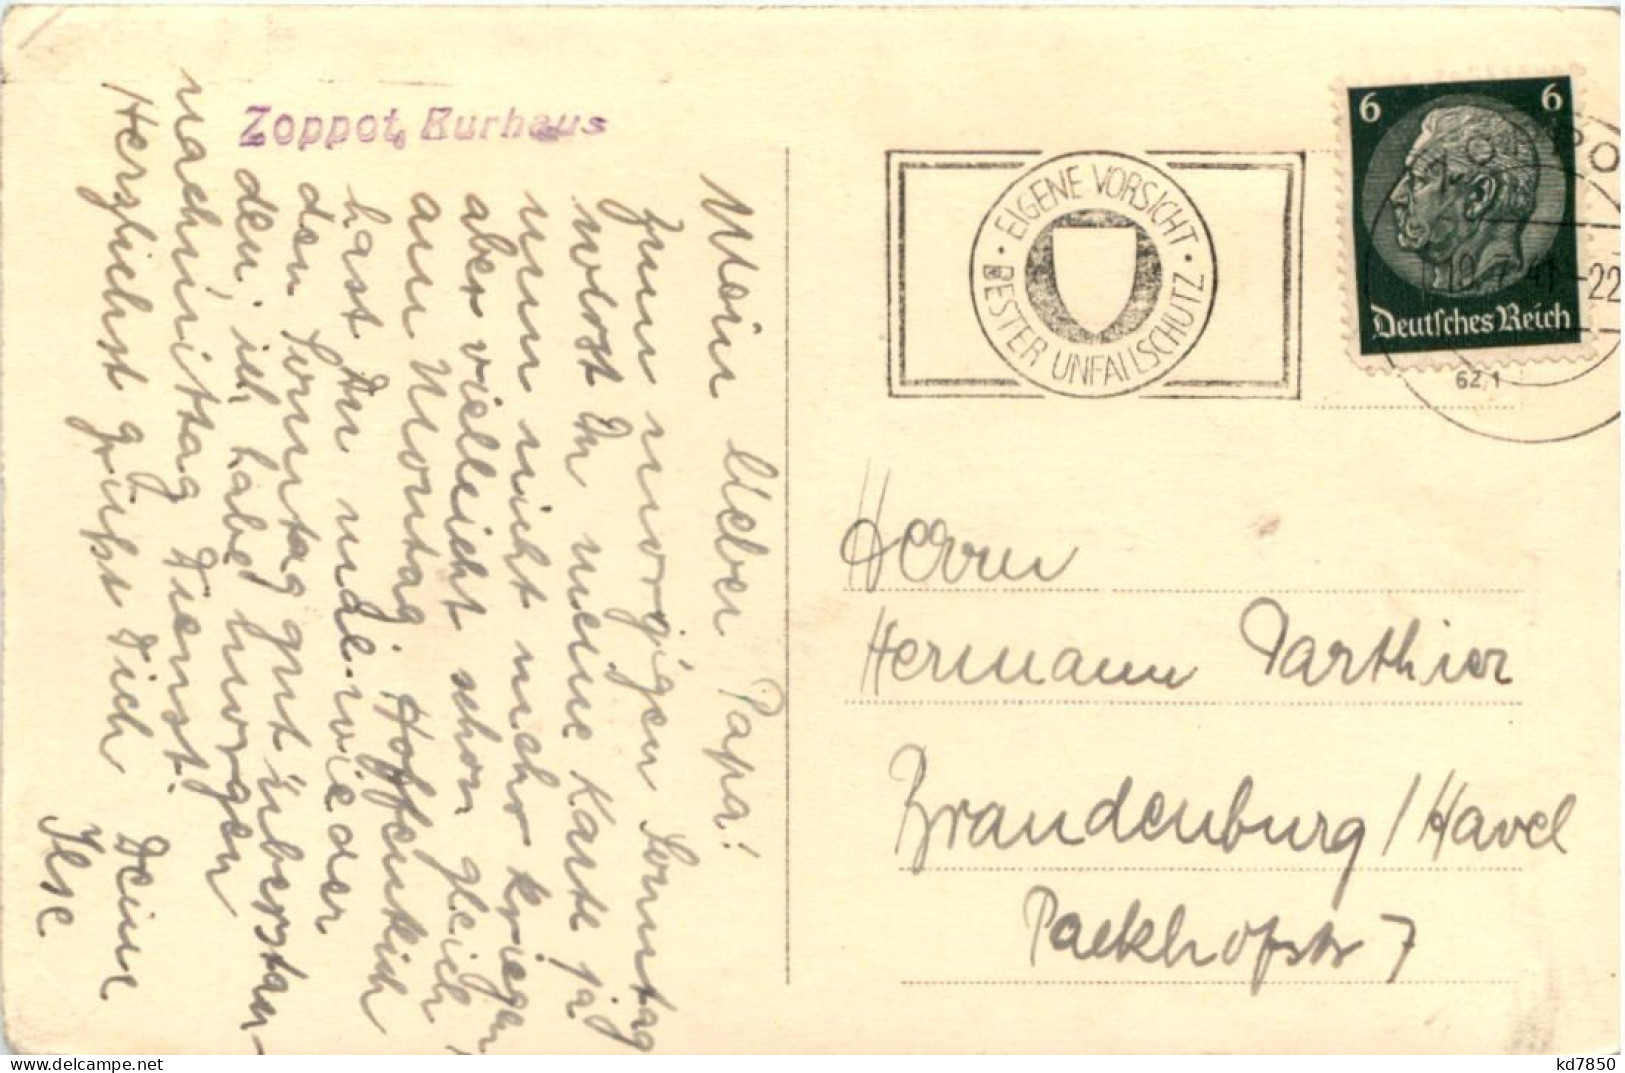 Zoppot, Kurhaus
Mein lieber Papa!
Zum morgigen Sonntag
wirst Du meine Karte ja
nun nicht mehr kriegen,
aber vielleicht schon gleich
am Montag. Hoffentlich
hast Du mal wieder
den Sonntag gut überstan-
den, ich habe morgen
nachmittag Dienst.
Herzlichst grüßt Dich Deine
Ilse
EIGENE VORSICHT
BESTER UNFALLSCHUTZ
6 6
Deutsches Reich
19.7.41-22
62,1
Herrn
Hermann Parthier
Brandenburg / Havel
Packhofstr 7
kd7850